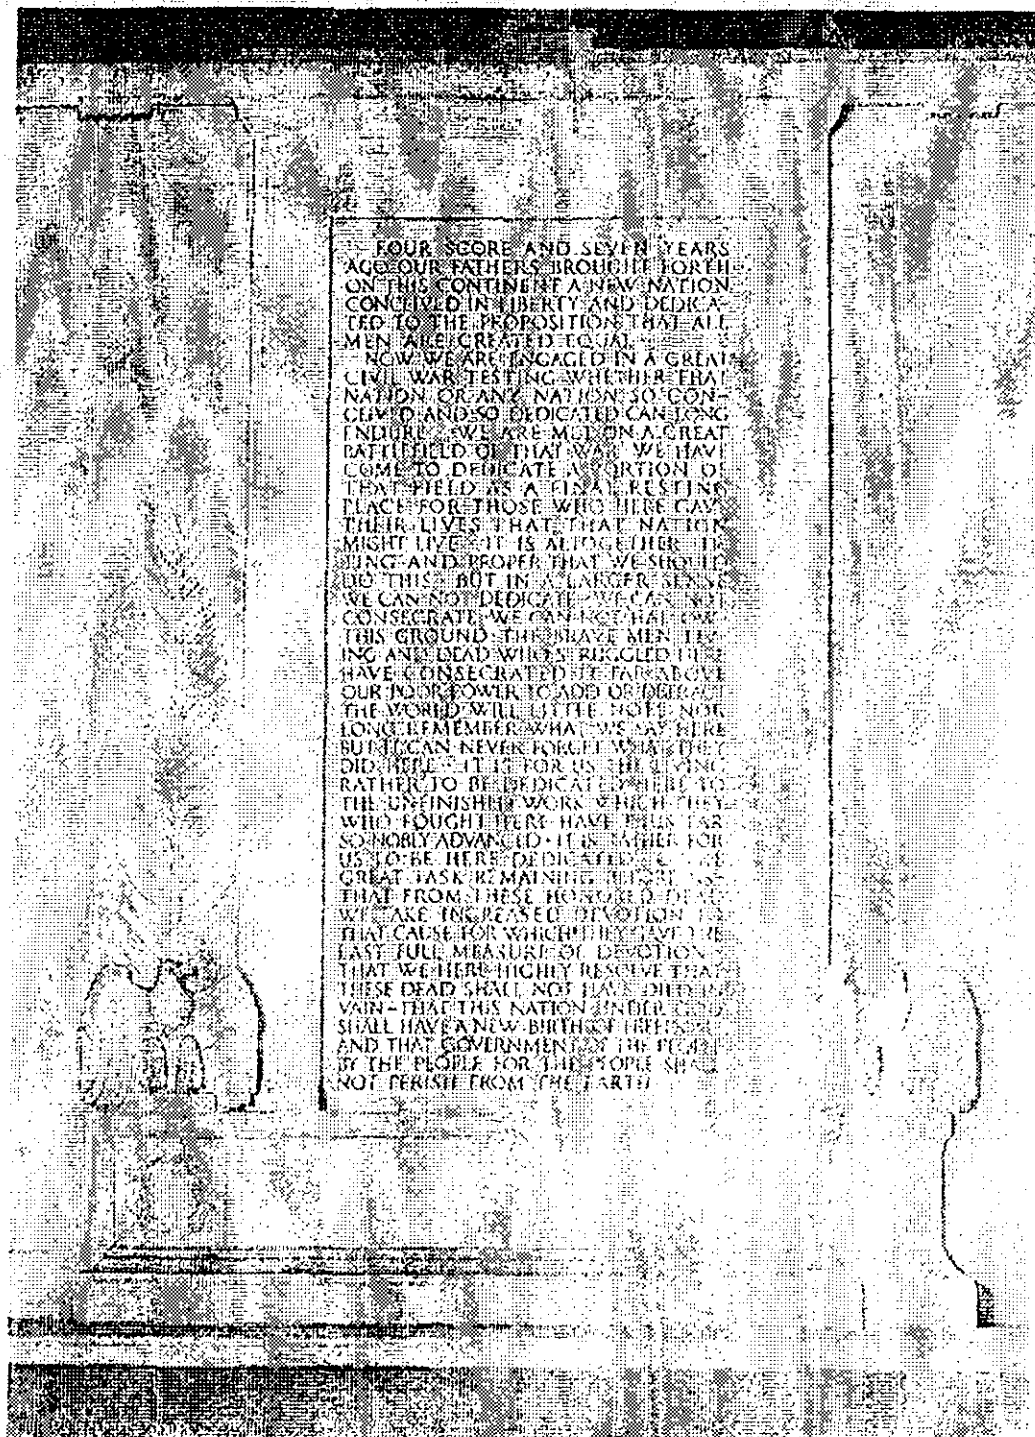 FOUR SCORE AND SEVEN YEARS
AGO OUR FATHERS BROUGHT FORTH
ON THIS CONTINENT A NEW NATION
CONCEIVED IN LIBERTY AND DEDICA-
TED TO THE PROPOSITION THAT ALL
MEN ARE CREATED EQUAL ·
NOW WE ARE ENGAGED IN A GREAT
CIVIL WAR TESTING WHETHER THAT
NATION OR ANY NATION SO CON-
CEIVED AND SO DEDICATED CAN LONG
ENDURE · WE ARE MET ON A GREAT
BATTLEFIELD OF THAT WAR · WE HAVE
COME TO DEDICATE A PORTION OF
THAT FIELD AS A FINAL RESTING
PLACE FOR THOSE WHO HERE GAVE
THEIR LIVES THAT THAT NATION
MIGHT LIVE · IT IS ALTOGETHER FIT-
TING AND PROPER THAT WE SHOULD
DO THIS · BUT IN A LARGER SENSE
WE CAN NOT DEDICATE – WE CAN NOT
CONSECRATE – WE CAN NOT HALLOW –
THIS GROUND · THE BRAVE MEN LIV-
ING AND DEAD WHO STRUGGLED HERE
HAVE CONSECRATED IT FAR ABOVE
OUR POOR POWER TO ADD OR DETRACT
THE WORLD WILL LITTLE NOTE NOR
LONG REMEMBER WHAT WE SAY HERE
BUT IT CAN NEVER FORGET WHAT THEY
DID HERE · IT IS FOR US THE LIVING
RATHER TO BE DEDICATED HERE TO
THE UNFINISHED WORK WHICH THEY
WHO FOUGHT HERE HAVE THUS FAR
SO NOBLY ADVANCED · IT IS RATHER FOR
US TO BE HERE DEDICATED TO THE
GREAT TASK REMAINING BEFORE US –
THAT FROM THESE HONORED DEAD
WE TAKE INCREASED DEVOTION TO
THAT CAUSE FOR WHICH THEY GAVE THE
LAST FULL MEASURE OF DEVOTION –
THAT WE HERE HIGHLY RESOLVE THAT
THESE DEAD SHALL NOT HAVE DIED IN
VAIN – THAT THIS NATION UNDER GOD
SHALL HAVE A NEW BIRTH OF FREEDOM –
AND THAT GOVERNMENT OF THE PEOPLE
BY THE PEOPLE FOR THE PEOPLE SHALL
NOT PERISH FROM THE EARTH ·